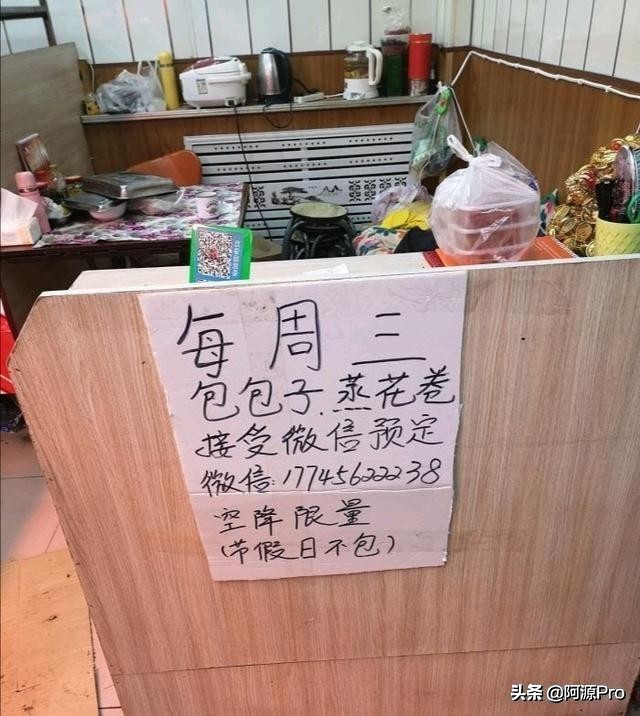 每周三
包包子.蒸花卷
接受微信预定
微信:17745622238
空降限量
(节假日不包)
头条 @阿源Pro